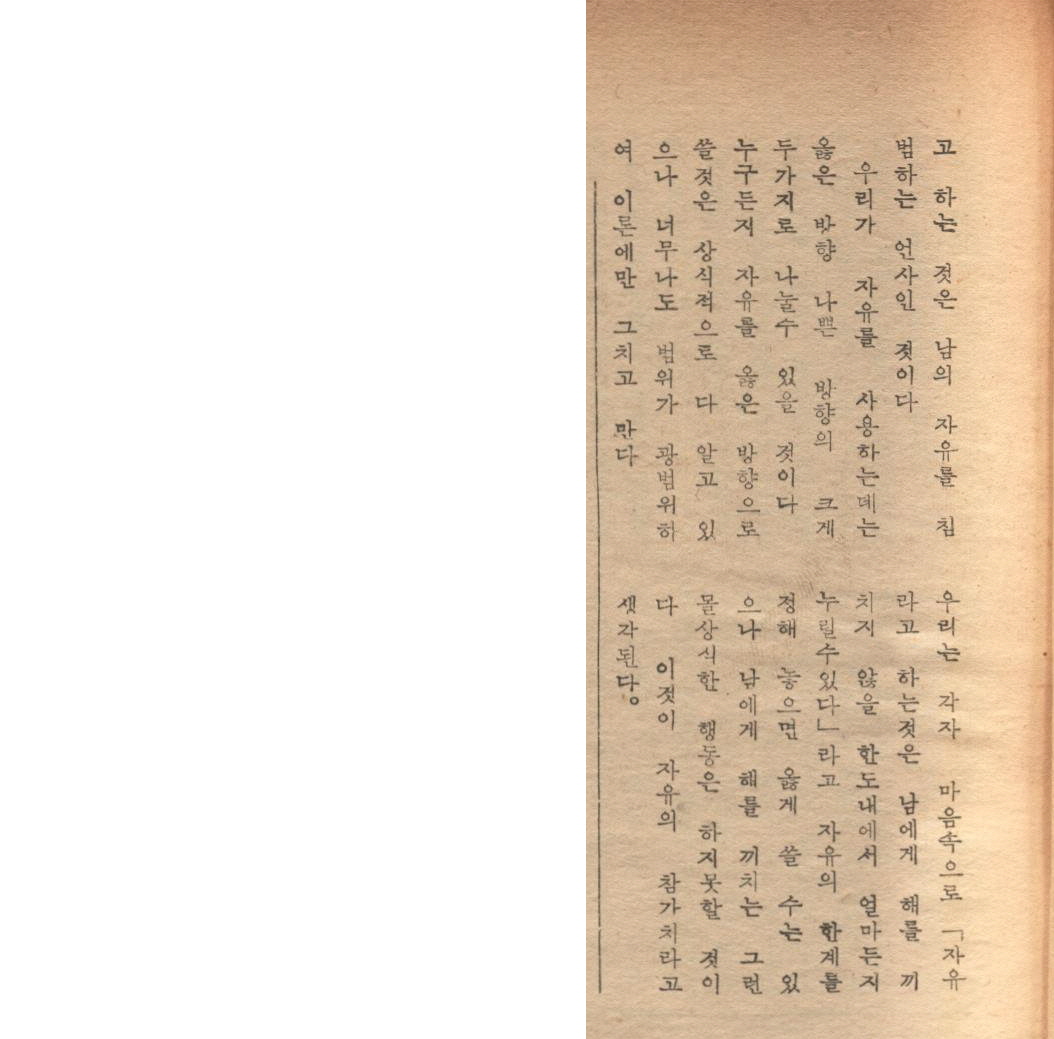 고 하는 것은 남의 자유를 침
범하는 언사인 것이다
우리가 자유를 사용하는데는
옳은 방향 나쁜 방향의 크게
두가지로 나눌수 있을 것이다
누구든지 자유를 옳은 방향으로
쓸것은 상식적으로 다 알고 있
으나 너무나도 범위가 광범위하
여 이론에만 그치고 만다
우리는 각자 마음속으로 「자유
라고 하는것은 남에게 해를 끼
치지 않을 한도내에서 얼마든지
누릴수있다」라고 자유의 한계를
정해 놓으면 옳게 쓸 수는 있
으나 남에게 해를 끼치는 그런
몰상식한 행동은 하지못할 것이
다 이것이 자유의 참가치라고
생각된다。